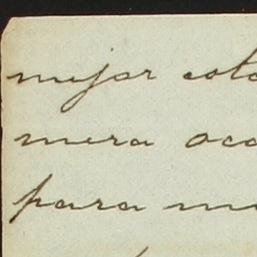 mejor esta
mera oca
para me